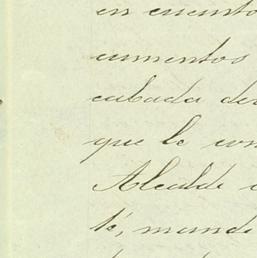 en cuento
cumentos
cabada der
que le con
Alcalde
té, mande